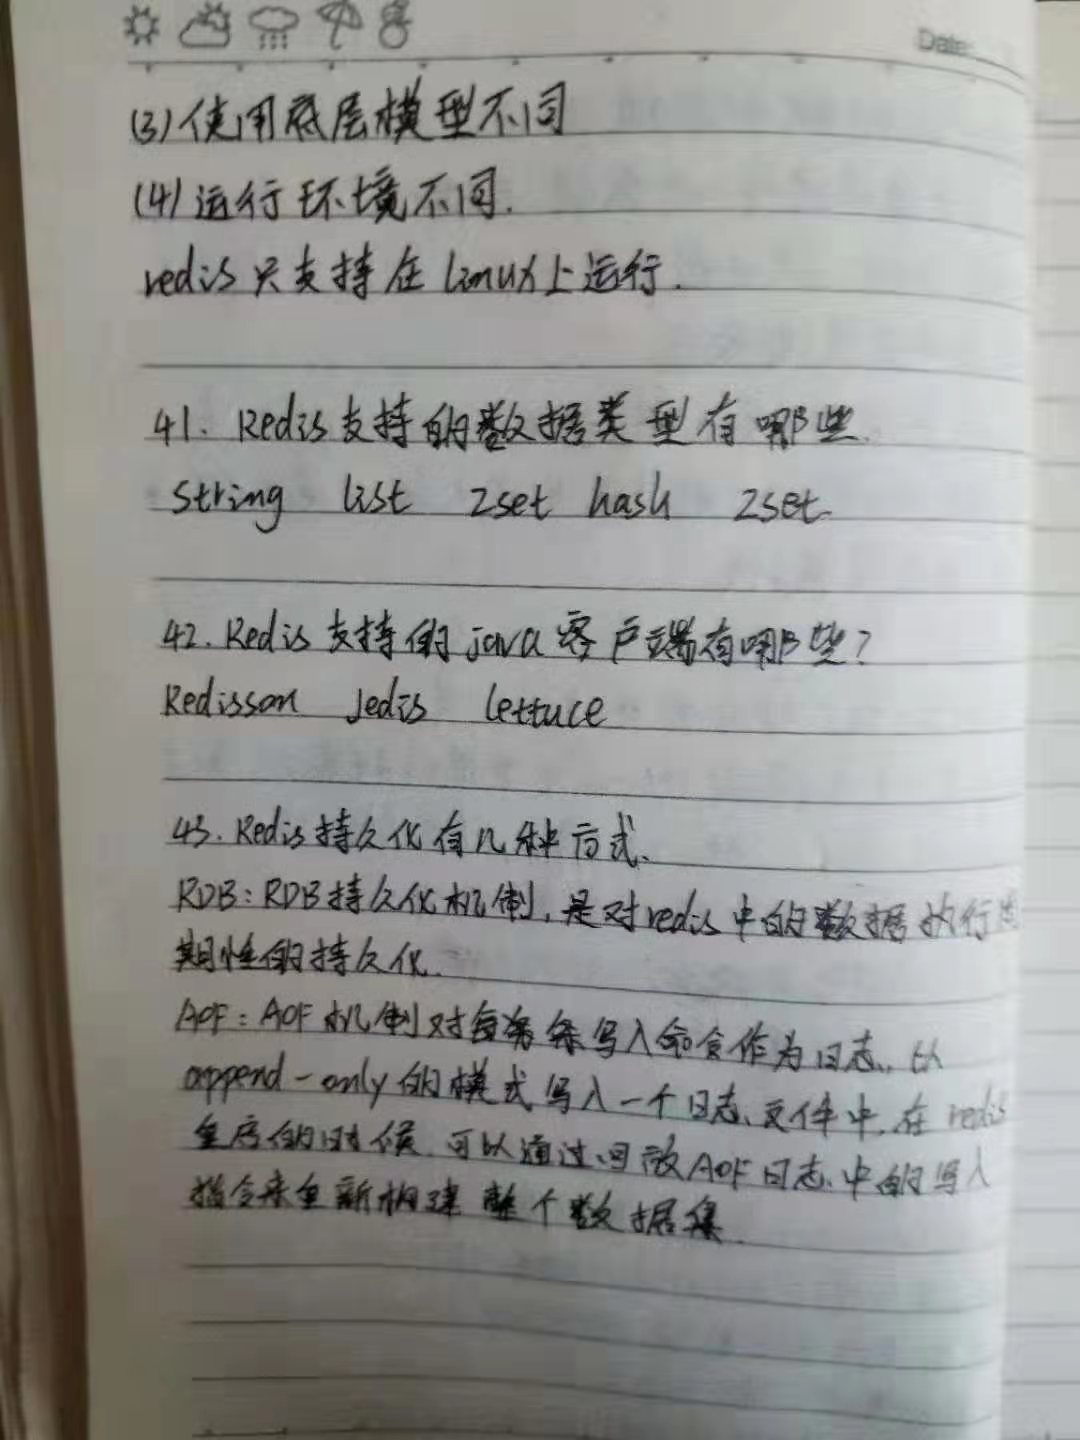 Date:
(3)使用底层模型不同
(4)运行环境不同.
redis只支持在linux上运行.
41. Redis支持的数据类型有哪些.
string list zset hash zset.
42. Redis支持的java客户端有哪些?
Redisson Jedis lettuce
43. Redis持久化有几种方式、
RDB:RDB持久化机制,是对redis中的数据执行周
期性的持久化.
AOF:AOF机制对每条写入命令作为日志,以
append-only的模式写入一个日志文件中,在redis
重启的时候,可以通过回放AOF日志中的写入
指令来重新构建整个数据集.